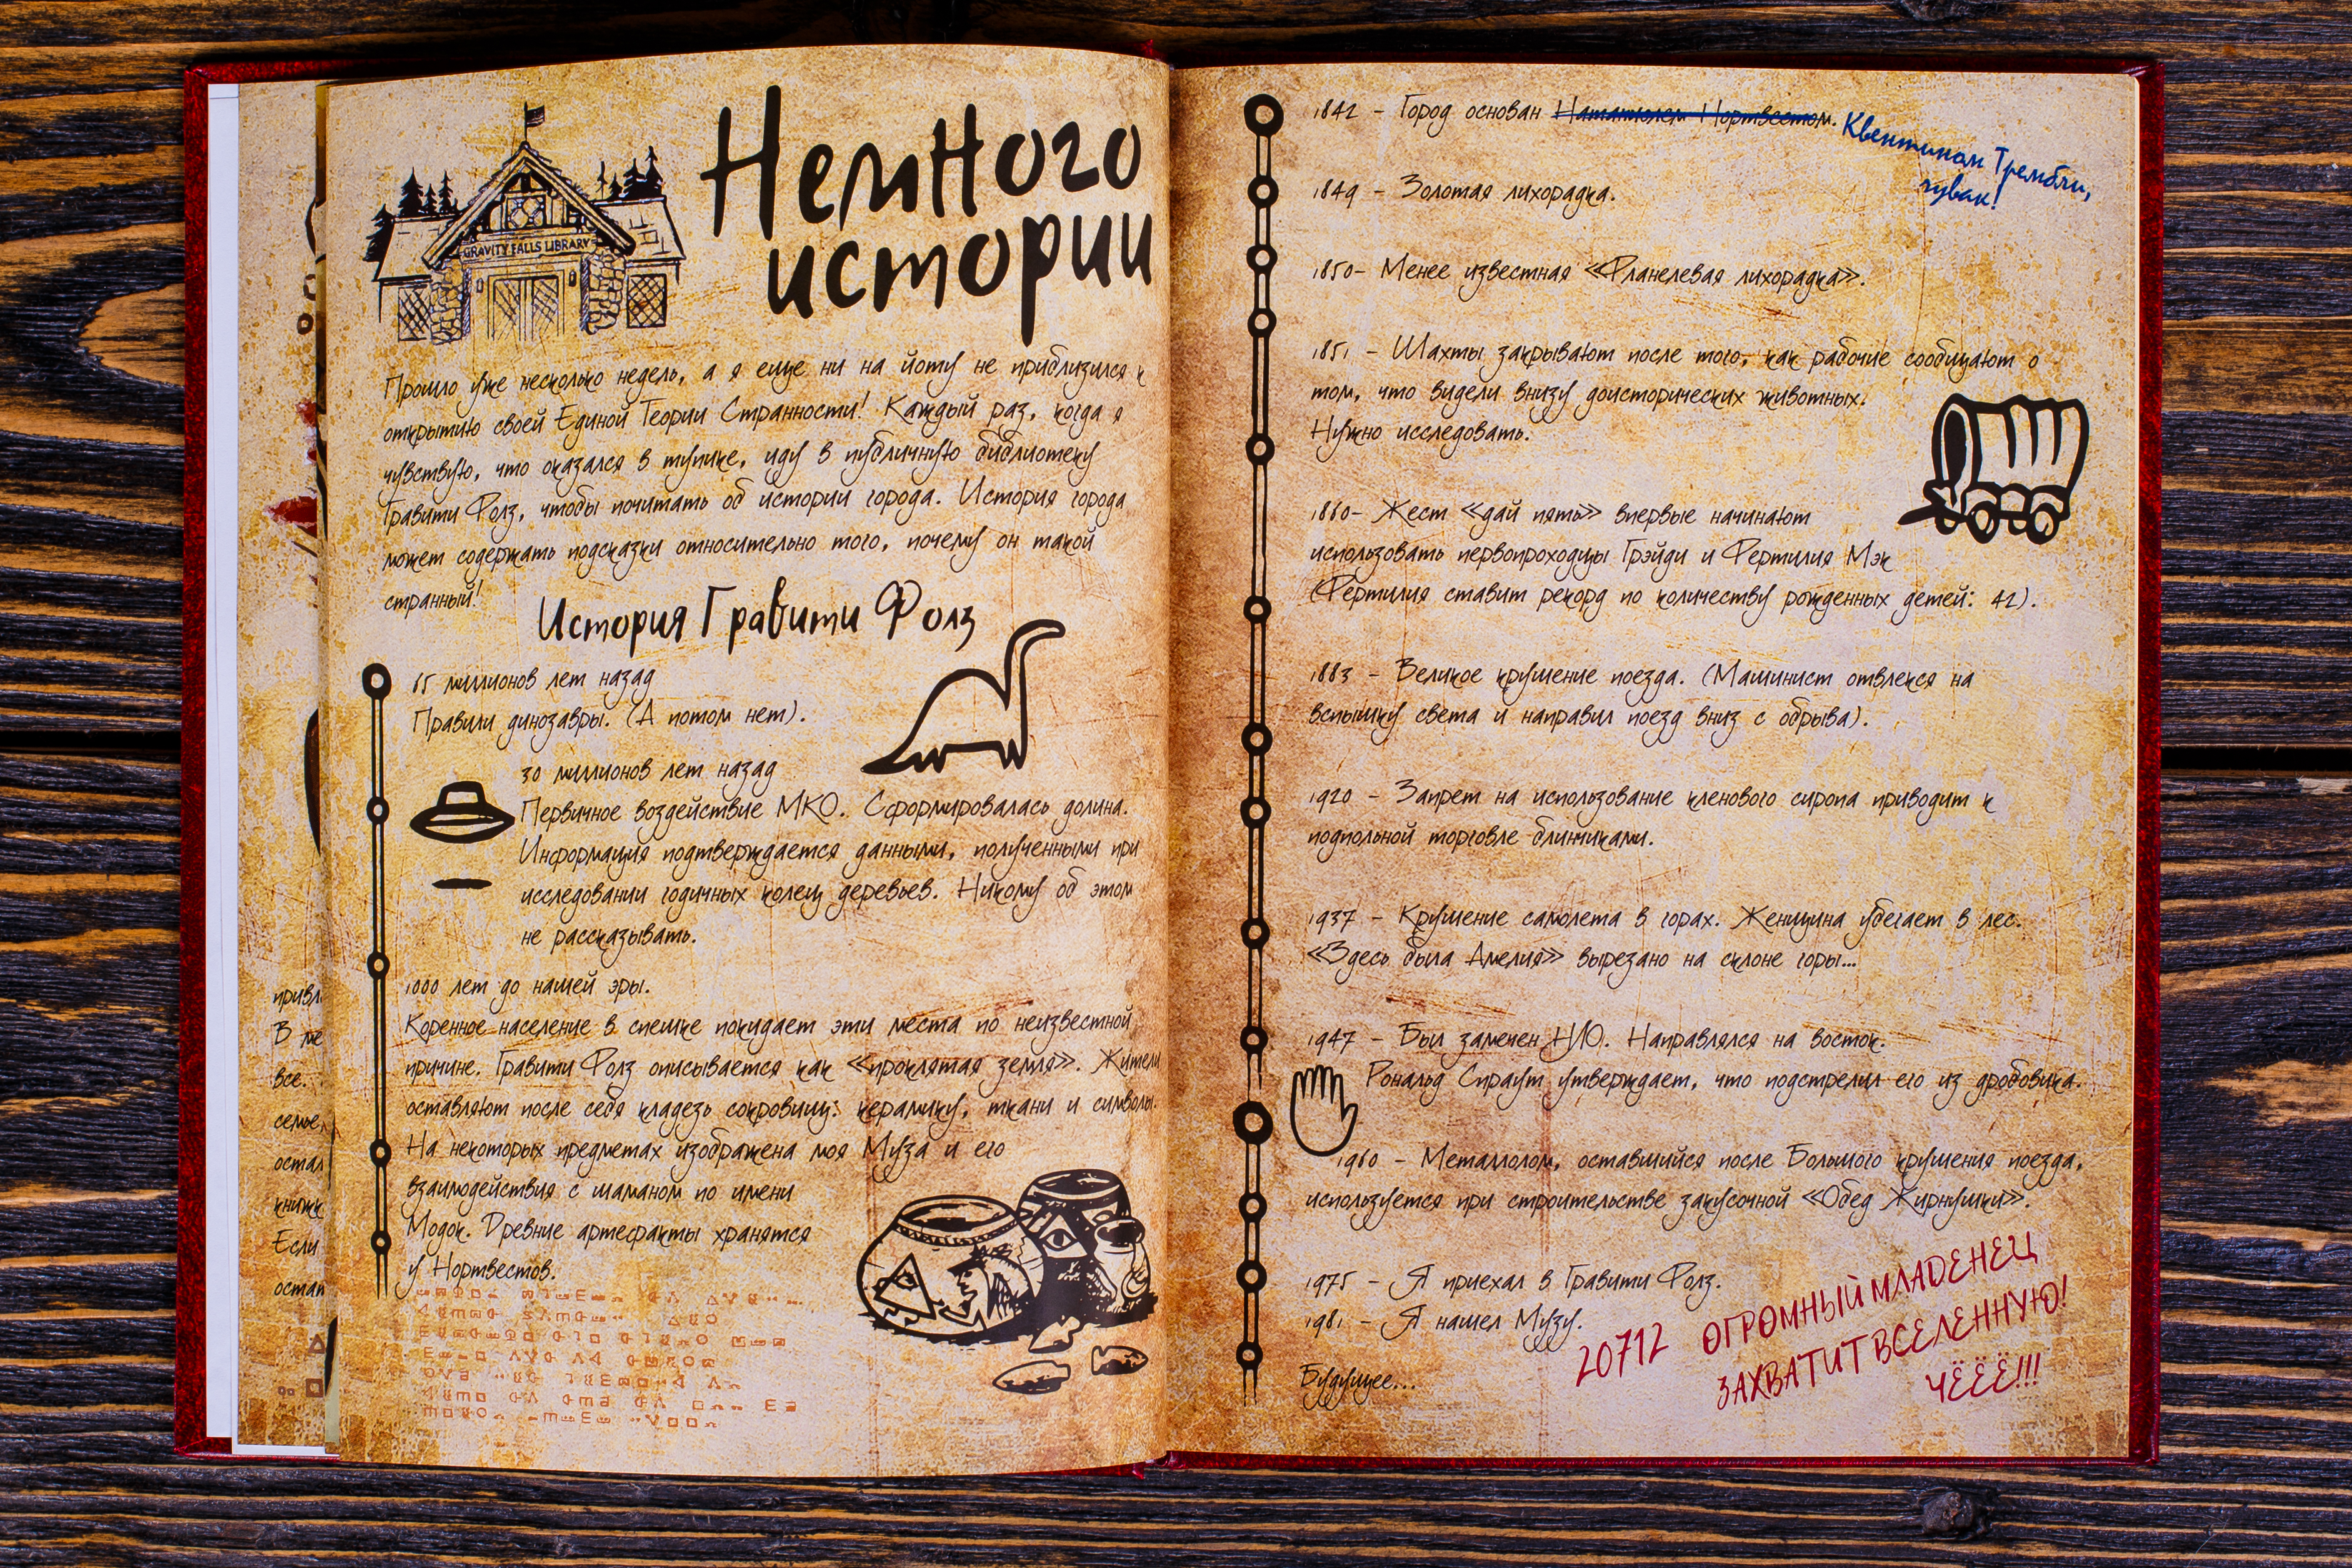 Немного
истории
GRAVITY FALLS LIBRARY
Прошло уже несколько недель, а я еще ни на йоту не приблизился к
открытию своей Единой Теории Странности! Каждый раз, когда я
чувствую, что оказался в тупике, иду в публичную библиотеку
Гравити Фолз, чтобы почитать об истории города. История города
может содержать подсказки относительно того, почему он такой
странный!
История Гравити Фолз
65 миллионов лет назад
Правили динозавры. (А потом нет).
30 миллионов лет назад
Первичное воздействие МКО. Сформировалась долина.
Информация подтверждается данными, полученными при
исследовании годичных колец деревьев. Никому об этом
не рассказывать.
1000 лет до нашей эры.
Коренное население в спешке покидает эти места по неизвестной
причине. Гравити Фолз описывается как «проклятая земля». Жители
оставляют после себя кладезь сокровищ: керамику, ткани и символы.
На некоторых предметах изображена моя Муза и его
взаимодействия с шаманом по имени
Модок. Древние артефакты хранятся
у Нортвестов.
привл
В ме
все.
семье,
остал
книжк
Если
остат
1842 – Город основан Натаниэлем Нортвестом. Квентином Трембли,
чувак!
1849 – Золотая лихорадка.
1850- Менее известная «Фланелевая лихорадка».
1851 – Шахты закрывают после того, как рабочие сообщают о
том, что видели внизу доисторических животных.
Нужно исследовать.
1860- Жест «дай пять» впервые начинают
использовать первопроходцы Грэйди и Фертилия Мэк
(Фертилия ставит рекорд по количеству рожденных детей: 42).
1883 – Великое крушение поезда. (Машинист отвлекся на
вспышку света и направил поезд вниз с обрыва).
1920 – Запрет на использование кленового сиропа приводит к
подпольной торговле блинчиками.
1937 – Крушение самолета в горах. Женщина убегает в лес.
«Здесь была Амелия» вырезано на склоне горы...
1947 – Был замечен НЛО. Направлялся на восток.
Рональд Спраут утверждает, что подстрелил его из дробовика.
1960 – Металлолом, оставшийся после Большого крушения поезда,
используется при строительстве закусочной «Обед Жирнушки».
1975 – Я приехал в Гравити Фолз.
1981 – Я нашел Музу.
Будущее...
20712 ОГРОМНЫЙ МЛАДЕНЕЦ
ЗАХВАТИТ ВСЕЛЕННУЮ!
ЧЁЁЁ!!!